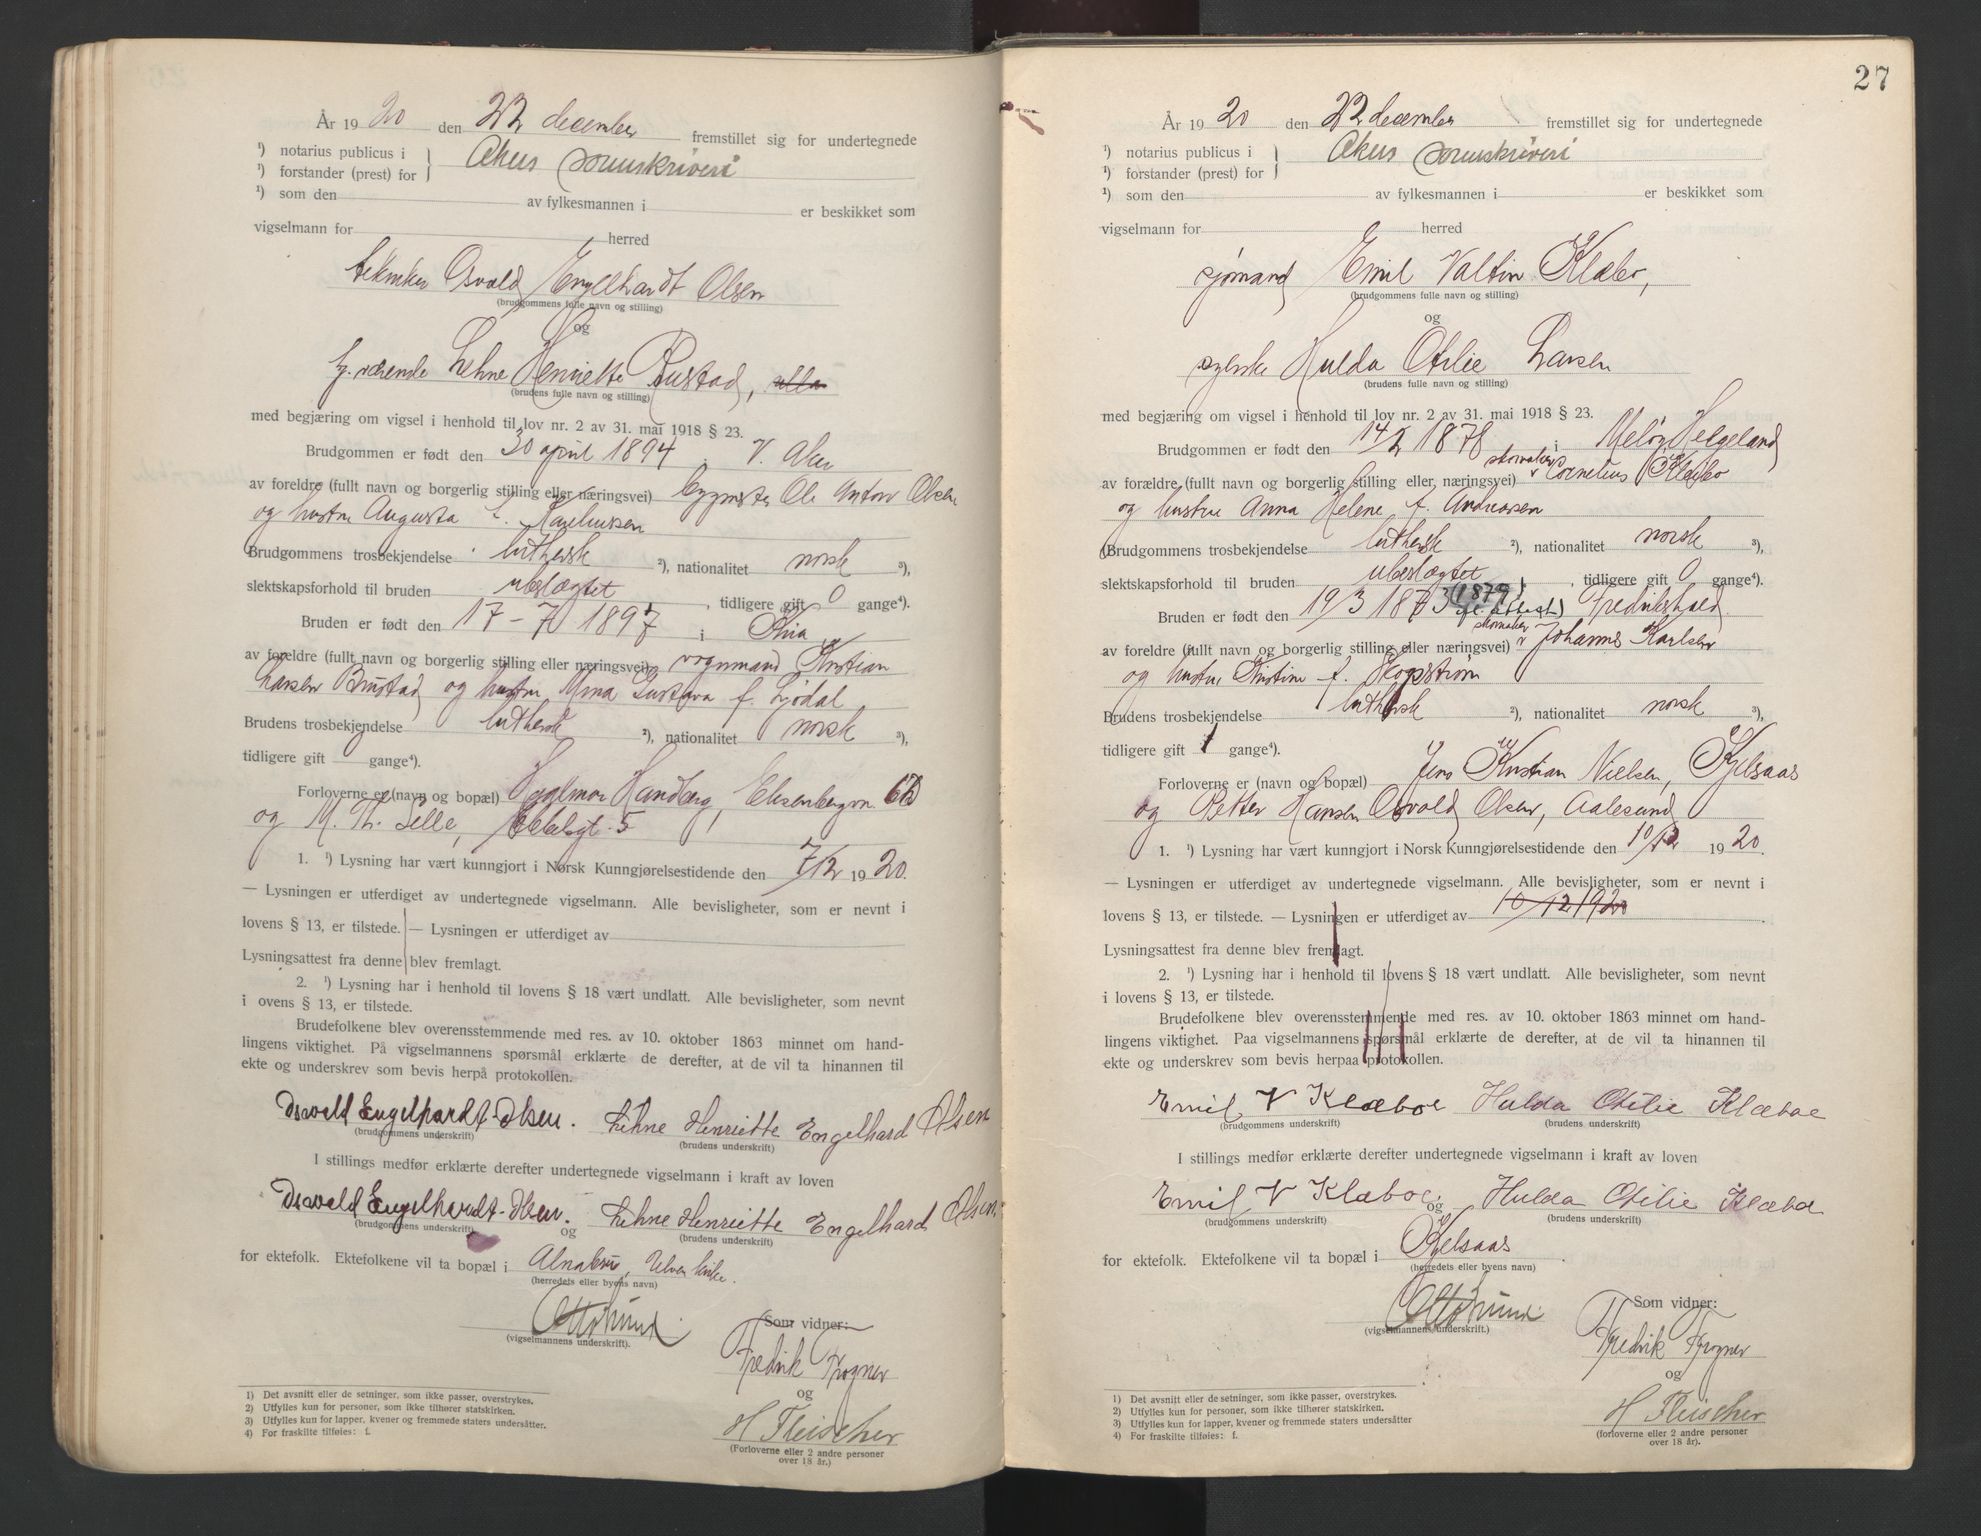 År 1920 den 22 december fremstillet sig for undertegnede
¹) notarius publicus i } Akers sorenskriveri
¹) forstander (prest) for
¹) som den av fylkesmannen i er beskikket som
vigselmann for herred
tekniker Osvald Engelhardt Olsen
(brudgommens fulle navn og stilling)
og
Lehne Henriette Brustad,
(brudens fulle navn og stilling)
med begjæring om vigsel i henhold til lov nr. 2 av 31. mai 1918 § 23.
Brudgommen er født den 30 april 1894 V. Aker
av foreldre (fullt navn og borgerlig stilling eller næringsvei) bygmester Ole Anton Olsen
og hustru Augusta f.
Brudgommens trosbekjendelse luthersk ²), nationalitet norsk ³),
slektskapsforhold til bruden ubeslægtet, tidligere gift 0 gange⁴).
Bruden er født den 17-7 1897 i Kria
av foreldre (fullt navn og borgerlig stilling eller næringsvei) vognmand Kristian
Larsen Brustad og hustru Mina Gustava f. Lødal
Brudens trosbekjendelse luthersk ²), nationalitet norsk ³),
tidligere gift gange⁴).
Forloverne er (navn og bopæl) Hjalmar Handberg, Eilersenbergvn. 6
og M. Th. Selle, 5
1. ¹) Lysning har vært kunngjort i Norsk Kunngjørelsestidende den 7/12 1920.
— Lysningen er utferdiget av undertegnede vigselmann. Alle bevisligheter, som er nevnt i
lovens § 13, er tilstede. — Lysningen er utferdiget av
Lysningsattest fra denne blev fremlagt.
2. ¹) Lysning har i henhold til lovens § 18 vært undlatt. Alle bevisligheter, som nevnt
i ovens § 13, er tilstede.
Brudefolkene blev overensstemmende med res. av 10. oktober 1863 minnet om hand-
lingens viktighet. På vigselmannens spørsmål erklærte de derefter, at de vil ta hinannen til
ekte og underskrev som bevis herpå protokollen.
Osvald Engelhardt-Olsen. Lehne Henriette Engelhard Olsen
(brudgommens underskrift) (brudens underskrift)
I stillings medfør erklærte derefter undertegnede vigselmann i kraft av loven
Osvald Engelhardt-Olsen. og Lehne Henriette Engelhard Olsen
(brudgommens underskrift) (brudens underskrift)
for ektefolk. Ektefolkene vil ta bopæl i Alnabru, Ulven
(herredets eller byens navn)
(vigselmannens underskrift).
Som vidner:
Fredrik Frogner
og
H Fleischer
(Forloverne eller 2 andre personer
over 18 år.)
1) Det avsnitt eller de setninger, som ikke passer, overstrykes.
2) Utfylles kun for personer, som ikke tilhører statskirken.
3) Utfylles kun for lapper, kvener og fremmede staters undersåtter.
4) For fraskilte tilføies: f.
27
År 1920 den 22 december fremstillet sig for undertegnede
¹) notarius publicus i } Akers sorenskriveri
¹) forstander (prest) for
¹) som den av fylkesmannen i er beskikket som
vigselmann for herred
sjømand Emil Valtin Klæbo,
(brudgommens fulle navn og stilling)
og
syerske Hulda Otilie Larsen
(brudens fulle navn og stilling)
med begjæring om vigsel i henhold til lov nr. 2 av 31. mai 1918 § 23.
Brudgommen er født den 14/2 1878 i Meløy Helgeland
av forældre (fullt navn og borgerlig stilling eller, næringsvei) skomaker Cornelius Klæbo
og hustru Anna Helene f. Andreasen
Brudgommens trosbekjendelse luthersk ²), nationalitet norsk ³),
slektskapsforhold til bruden ubeslægtet, tidligere gift 0 gange⁴).
Bruden er født den 19/3 1873 (1879) Fredrikshald
av foreldre (fullt navn og borgerlig stilling eller næringsvei) skomaker Johannes Karlsen
og hustru Kristine f. Skogstrøm
Brudens trosbekjendelse luthersk ²), nationalitet norsk ³),
tidligere gift 1 gange⁴).
Forloverne er (navn og bopæl) Jens Kristian Nielsen, Kjelsaas
og Petter Hansen Osvald Olsen, Aalesund
1. ¹) Lysning har vært kunngjort i Norsk Kunngjørelsestidende den 10/12 1920.
— Lysningen er utferdiget av undertegnede vigselmann. Alle bevisligheter, som er nevnt i
lovens § 13, er tilstede. — Lysningen er utferdiget av 10/12 1920.
Lysningsattest fra denne blev fremlagt.
2. ¹) Lysning har i henhold til lovens § 18 vært undlatt. Alle bevisligheter, som nevnt
i lovens § 13, er tilstede.
Brudefolkene blev overensstemmende med res. av 10. oktober 1863 minnet om hand-
lingens viktighet. Paa vigselmannens spørsmål erklærte de derefter, at de vil ta hinannen til
ekte og underskrev som bevis herpaa protokollen.
Emil V Klæboe Hulda Otilie Klæboe
(brudgommens underskrift) (brudens underskrift)
I stillings medfør erklærte derefter undertegnede vigselmann i kraft av loven
Emil V Klæboe. og Hulda Otilie Klæboe
(brudgommens underskrift) (brudens underskrift)
for ektefolk. Ektefolkene vil ta bopæl i Kjelsaas.
(herredets eller byens navn)
(vigselmannens underskrift.)
Som vidner:
Fredrik Frogner
og
H Fleischer
(forloverne eller 2 andre personer
over 18 år).
1) Det avsnitt eller de setninger, som ikke passer, overstrykes.
2) Utfylles kun for personer, som ikke tilhører statskirken.
3) Utfylles kun for lapper, kvener og fremmede staters undersåtter
4) For fraskilte tilføies: f.